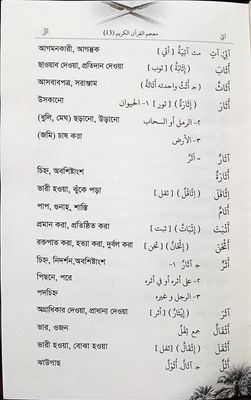 أتى معجم القرآن الكريم (13) أتى
آتٍ، آتٍ مث آتِيَةٌ [أتى] আগমনকারী, আগন্তুক
أَثَابَ (إِثَابَةً) [ثوب] ছাওয়াব দেওয়া, প্রতিদান দেওয়া
أَثَاثٌ ج أُثُثٌ واحدته أَثَاثَةٌ আসবাবপত্র, সরাঞ্জাম
أَثَارَ (إِثَارَةً) [ثور] ١- الحيوان উসকানো
٢- الرمل أو السحاب (ধুলি, মেঘ) ছড়ানো, উড়ানো
٣- الأرض (জমি) চাষ করা
آثَارٌ ~ أَثَرٌ
أَثَارَةٌ চিহ্ন, অবশিষ্টাংশ
اثَّاقَلَ (اثَّاقُلًا) [ثقل] ভারী হওয়া, ঝুঁকে পড়া
أَثَامٌ পাপ, গুনাহ, শাস্তি
أَثْبَتَ (إِثْبَاتًا) [ثبت] প্রমান করা, প্রতিষ্ঠিত করা
أَثْخَنَ (إِثْخَانًا) [ثخن] রক্তপাত করা, হত্যা করা, দুর্বল করা
أَثَرٌ ج آثَارٌ ١- চিহ্ন, নিদর্শন,অবশিষ্টাংশ
٢- على أثره أو في أثره পিছনে, পরে
٣- الرجل وغيره পদচিহ্ন
آثَرَ (إِيثَارًا) [أثر] অগ্রাধিকার দেওয়া, প্রাধান্য দেওয়া
أَثْقَالٌ جمع ثِقْلٌ ভার, ওজন
أَثْقَلَ (إِثْقَالًا) [ثقل] ভারী হওয়া, বোঝা হওয়া
أَثْلٌ ج آثَالٌ، أُثُولٌ ঝাউগাছ